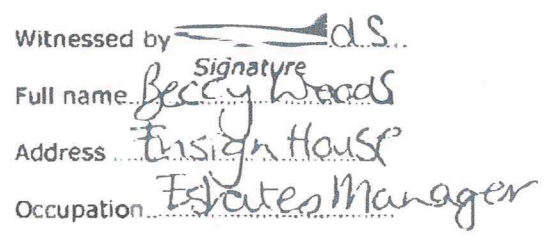 Witnessed by ds
Signature
Full name Beccy Woods
Address Ensign House
Occupation Estates Manager